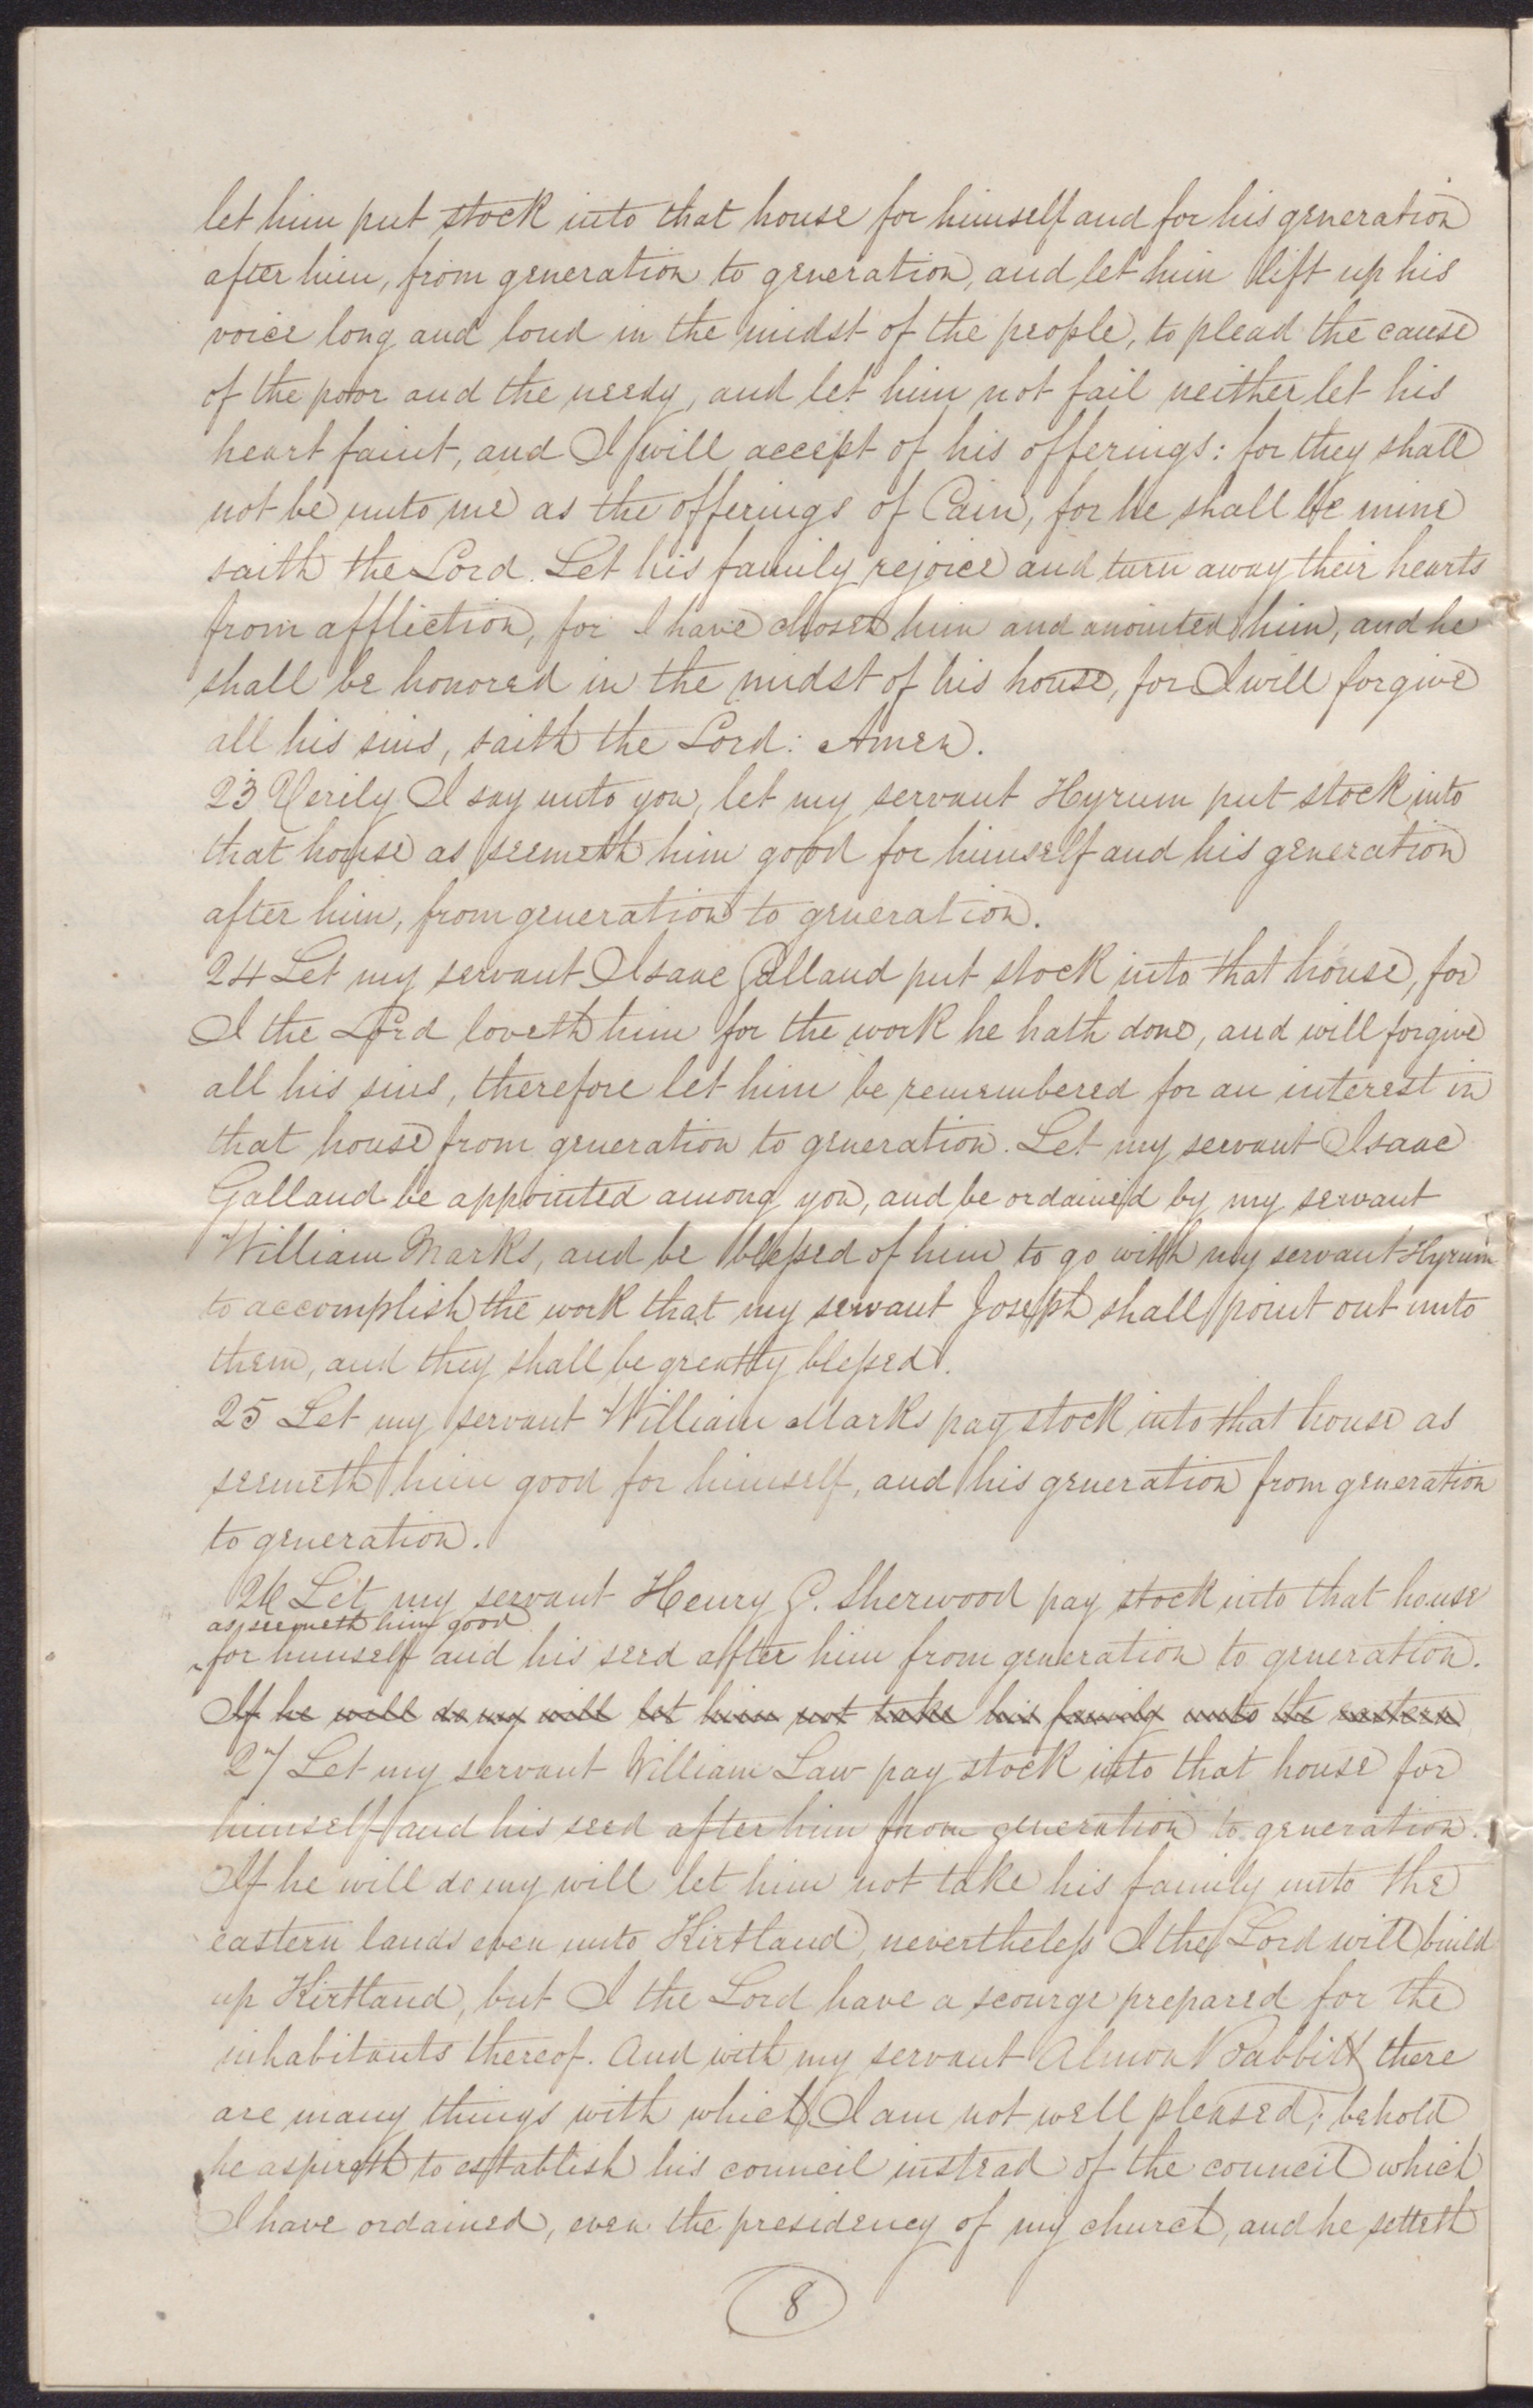 let him put stock into that house for himself and for his generation
after him, from generation to generation, and let him lift up his
voice long and loud in the midst of the people, to plead the cause
of the poor and the needy, and let him not fail neither let his
heart faint, and I will accept of his offerings: for they shall
not be unto me as the offerings of Cain, for he shall be mine
saith the Lord. Let his family rejoice and turn away their hearts
from affliction, for I have chosen him and anointed him, and he
shall be honored in the midst of his house, for I will forgive
all his sins, saith the Lord: Amen.
23 Verily I say unto you, let my servant Hyrum put stock into
that house as seemeth him good for himself and his generation
after him, from generation to generation.
24 Let my servant Isaac Galland put stock into that house, for
I the Lord loveth him for the work he hath done, and will forgive
all his sins, therefore let him be remembered for an interest in
that house from generation to generation. Let my servant Isaac
Galland be appointed among you, and be ordained by my servant
William Marks, and be blessed of him to go with my servant Hyrum
to accomplish the work that my servant Joseph shall point out unto
them, and they shall be greatly blessed.
25 Let my servant William Marks pay stock into that house as
seemeth him good for himself, and his generation from generation
to generation.
26 Let my servant Henry G. Sherwood pay stock into that house
as seemeth him good
for himself and his seed after him from generation to generation.
If he will do my will let him not take his family unto the eastern
27 Let my servant William Law pay stock into that house for
himself and his seed after him from generation to generation.
If he will do my will let him not take his family unto the
eastern lands even unto Kirtland, nevertheless I the Lord will build
up Kirtland, but I the Lord have a scourge prepared for the
inhabitants thereof. And with my servant Almon Babbitt there
are many things with which I am not well pleased; behold
he aspireth to establish his council instead of the council which
I have ordained, even the presidency of my church, and he setteth
8